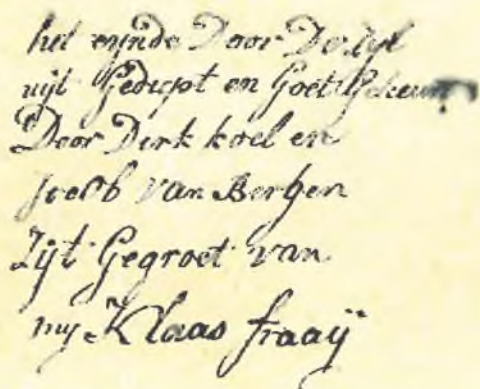 het eijnde Door De tijt
uijt Gedrupt en Goet Gekeurt
Door Dirk koel en
Jacob van Bergen
Zijt Gegroet van
mij Klaas fraaij